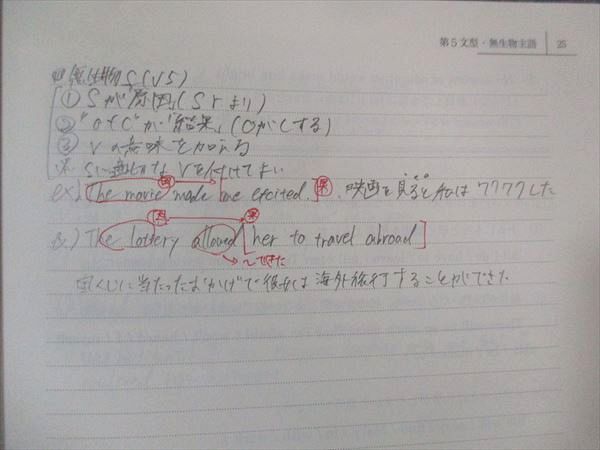 第5文型・無生物主語 25
無生物S(V5)
① Sが「原因」(Sにより)
② "O+C"が「結果」(OがCする)
③ Vの意味を加える
※ Sに適切なVを付けてよい
ex.) The movie made [me excited.] 果 映画を見ると私はワクワクした
因 果
ex.) The lottery allowed [her to travel abroad]
→〜できた
宝くじに当たったおかげで彼女は海外旅行することができた